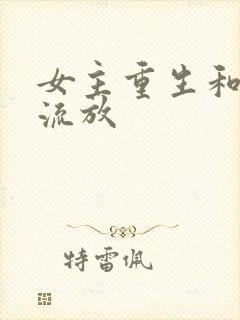 女主重生和
流放
特雷佩